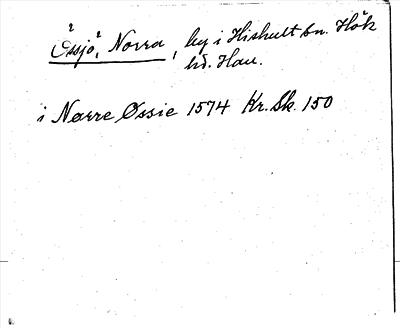 Össjö, Norra, by i Hishult sn. Hök
hd. Hall.
i Nørre Øssie 1574 Kr. Sk. 150